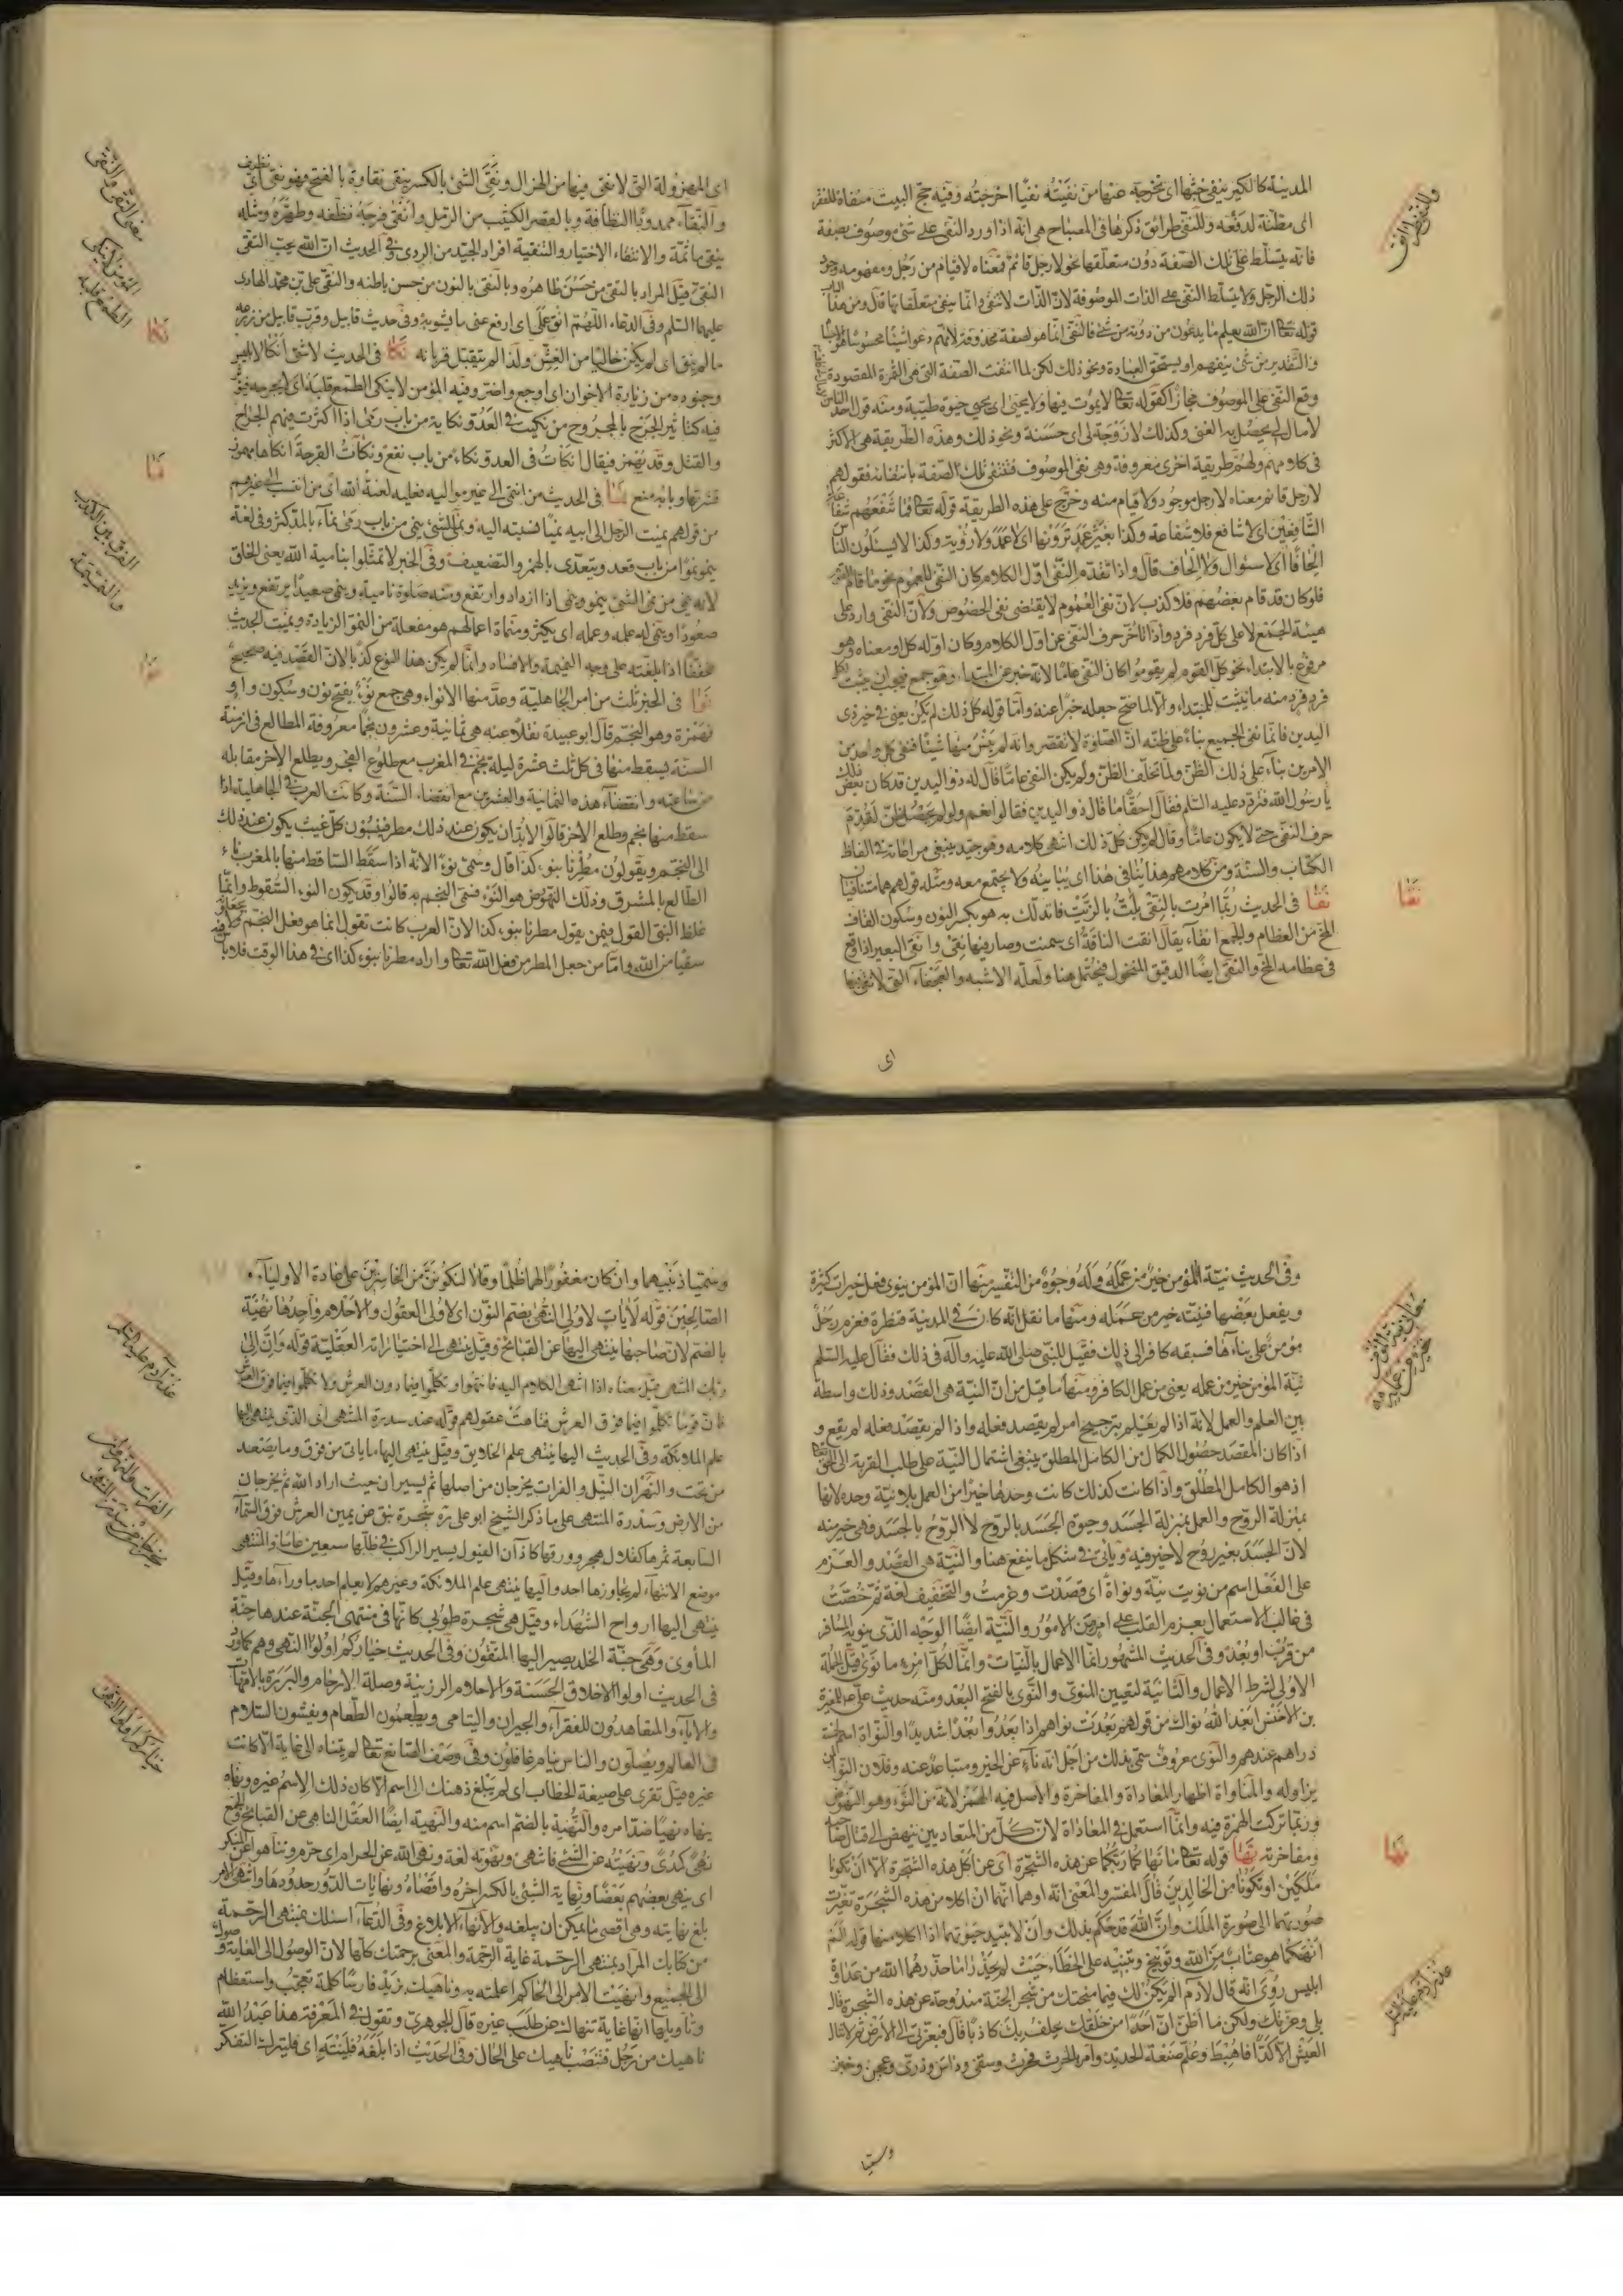 المدينة كالكير ينفى خبثها اى تخرجه عنها من نفيته نفيًا اخرجته وفيه حج البيت منفاة للفقر
اى مظنة لدفعه وللنفى طرائق ذكرها فى المصباح هى انه اذا ورد النفى على شئ موصوف بصفة
فانه يتسلط على تلك الصفة دون متعلقها نحو لا رجل قائم فمعناه لا قيام من رجل ومفهومه وجود
ذلك الرجل ولا يتسلط النفى على الذات الموصوفة لان الذات لا تنفى وانما ينفى متعلقاتها قال ومن هذا الباب
قوله تعالى ان الله يعلم ما يدعون من دونه من شئ فالنفى انما هو لصفة محذوفة لانهم دعوا شيئا محسوسا
والتقدير من شئ ينفعهم او يستحق العبادة ونحو ذلك لكن لما انتفت الصفة التى هى الثمرة المقصودة
وقع النفى على الموصوف مجازا كقوله تعالى لا يموت فيها ولا يحيى اى يحيى حيوة طيبة ومنه قول احد الناس
لا مال لى يحصل به الغنى وكذلك لا زوجة لى اى حسنة ونحو ذلك وهذه الطريقة هى الاكثر
فى كلامهم ولهم طريقة اخرى معروفة وهى نفى الموصوف فتنتفى تلك الصفة بانتفائه فقولهم
لا رجل قائم معناه لا رجل موجود ولا قيام منه وخرج على هذه الطريقة قوله تعالى فما تنفعهم شفاعة
الشافعين اى لا شافع فلا شفاعة وكذا بغير عمد ترونها اى لا عمد ولا رؤية وكذا لا يسئلون الناس
الحافا اى لا سئوال ولا الحاف قال واذا تقدم النفى اول الكلام كان النفى للعموم نحو ما قام القوم
فلو كان قد قام بعضهم فلا كذب لان نفى العموم لا يقتضى نفى الخصوص ولان النفى وارد على
هيئة الجمع لا على كل فرد فرد واذا تاخر حرف النفى عن اول الكلام وكان اوله كل او معناه وهو
مرفوع بالابتداء نحو كل القوم لم يقوموا كان النفى عاما لانه خبر عن المبتدا وهو جمع فيجب ان يثبت لكل
فرد فرد منه ما يثبت للمبتداء والا لما صح جعله خبرا عنه واما قوله كل ذلك لم يكن يعنى فى خبر ذى
اليدين فانما نفى الجميع بناء على ظنه ان الصلوة لا تقصر وانه لم ينس منها شيئا فنفى كل واحد من
الامرين بناء على ذلك الظن ولما تخلف الظن ولم يكن النفى عاما قال له ذو اليدين قد كان بعض ذلك
يا رسول الله فتردد عليه السلم فقال احقا ما قال ذو اليدين فقالوا نعم ولو لم يحصل له ظن لقدم
حرف النفى حتى لا يكون عاما وقال لم يكن كل ذلك انتهى كلامه وهو جيد ينبغى مراعاته فى الفاظ
الكتاب والسنة ومن كلامهم هذا ينافى هذا اى يباينه ولا يجتمع معه ومثله قولهم هما متنافيان
نقا فى الحديث ربما امرت بالنقى يلت بالزيت فاتدلك به هو بكسر النون وسكون القاف
المخ من العظام والجمع انقاء يقال انقت الناقة اى سمنت وصار فيها نقى وانقى البعير اذا وقع
فى عظامه المخ والنقى ايضا الدقيق المنخول فيحتمل هنا ولعله الاشبه والعجفاء التى لا تنقى
نقا
اى
اى المهزولة التى لا نقى فيها من الهزال ونقى الشئ بالكسر ينقى نقاوة بالفتح فهو نقى اى نظيف
والنقاء ممدودا النظافة وبالقصر الكثيب من الرمل وانقى فرجه نظفه وطهره ومثله
ينقى ما ثمة والانتقاء الاختيار والتنقية افراد الجيد من الردى وفى الحديث ان الله يحب التقى
النقى قيل المراد بالتقى من حسن ظاهره وبالنقى بالنون من حسن باطنه والنقى على بن محمد الهادى
عليهما السلم وفى الدعاء اللهم انق عملى اى ارفع عنى ما يشوبه وفى حديث قابيل وقرب قابيل من زرعه
ما لم ينق اى لم يكن خاليا من الغش ولذا لم يتقبل قربانه نكا فى الحديث لا شئ انكا لابليس
وجنوده من زيارة الاخوان اى اوجع واضر وفيه المؤمن لا ينكى الطمع قلبه اى لا يجرحه فيؤثر
فيه كتاثير الجرح بالمجروح من نكيت فى العدو نكاية من باب رمى اذا اكثرت فيهم الجراح
والقتل وقد يهمز فيقال انكات فى العدو نكاء من باب نفع ونكات القرحة انكاها مهموز
قشرتها وبابه منع نما فى الحديث من انتمى الى غير مواليه فعليه لعنة الله اى من انتسب الى غيرهم
من قولهم نميت الرجل الى ابيه نميا نسبته اليه ونما الشئ ينمى من باب رمى نماء بالمد كثر وفى لغة
ينمو نموا من باب قعد ويتعدى بالهمز والتضعيف وفى الخبر لا تمثلوا بنامية الله يعنى الخلق
لانه ينمى من نمى الشئ ينمو وينمى اذا ازداد وارتفع ومنه صلوة نامية وينمى صعيدا يرتفع ويزيد
صعودا وينمى له عمله وعمله اى يكثر ومنماة اعمالهم هو مفعلة من النمو الزيادة ونميت الحديث
مخففا اذا بلغته على وجه النميمة والافساد وانما لم يكن هذا النوع كذبا لان القصد فيه صحيح
نوا فى الخبر ثلث من امر الجاهلية وعد منها الانواء وهى جمع نوء بفتح نون وسكون واو
فهمزة وهو النجم قال ابو عبيدة نقلا عنه هى ثمانية وعشرون نجما معروفة المطالع فى ازمنة
السنة يسقط منها فى كل ثلث عشرة ليلة نجم فى المغرب مع طلوع الفجر ويطلع الاخر مقابله
من ساعته وانقضاء هذه الثمانية والعشرين مع انقضاء السنة وكانت العرب فى الجاهلية اذا
سقط منها نجم وطلع الاخر قالوا لا بد ان يكون عند ذلك مطر فينسبون كل غيث يكون عند ذلك
الى النجم ويقولون مطرنا بنوء كذا قال وسمى نوءا لانه اذا سقط الساقط منها بالمغرب ناء
الطالع بالمشرق وذلك النهوض هو النوء فسمى النجم به قالوا وقد يكون النوء السقوط وانما
غلظ النبى القول فيمن يقول مطرنا بنوء كذا لان العرب كانت تقول انما هو فعل النجم ولا يجعلونه
سقيا من الله واما من جعل المطر من فعل الله تعالى واراد مطرنا بنوء كذا اى فى هذا الوقت فلا باس
معنى التقى والنقى
المؤمن لا ينكى
الطمع قلبه
نكا
نما
الفرق بين الكذب
والنميمة
نوا
وفى الحديث نية المؤمن خير من عمله وله وجوه من التفسير منها ان المؤمن ينوى فعل خيرات كثيرة
ويفعل بعضها فنيته خير من عمله ومنها ما نقل انه كان فى المدينة قنطرة فعزم رجل
مؤمن على بناءها فسبقه كافر الى ذلك فقيل للنبى صلى الله عليه وآله فى ذلك فقال عليه السلم
نية المؤمن خير من عمله يعنى من عمل الكافر ومنها ما قيل من ان النية هى القصد وذلك واسطة
بين العلم والعمل لانه اذا لم يعلم بترجيح امر لم يقصد فعله واذا لم يقصد فعله لم يقع و
اذا كان المقصد حصول الكمال من الكامل المطلق ينبغى اشتمال النية على طلب القربة الى الحق تعالى
اذ هو الكامل المطلق واذا كانت كذلك كانت وحدها خيرا من العمل بلا نية وحده لانها
بمنزلة الروح والعمل بمنزلة الجسد وحيوة الجسد بالروح لا الروح بالجسد فهى خير منه
لان الجسد بغير روح لا خير فيه ويأتى فى شكل ما ينفع هنا والنية هى القصد والعزم
على الفعل اسم من نويت نية ونواة اى قصدت وعزمت والتخفيف لغة ثم خصت
فى غالب الاستعمال بعزم القلب على امر من الامور والنية ايضا الوجه الذى ينويه المسافر
من قرب او بعد وفى الحديث المشهور انما الاعمال بالنيات وانما لكل امرء ما نوى قيل الجملة
الاولى لشرط الاعمال والثانية لتعيين المنوى والنوى بالفتح البعد ومنه حديث على مع المغيرة
بن الاخنس ابعد الله نواك من قولهم بعدت نواهم اذا بعدوا بعدا شديدا والنواة اسم لخمسة
دراهم عندهم والنوى معروف سمى بذلك من اجل انه ناء عن الخير ومتباعد عنه وفلان النوا
يزاوله والمناواة اظهار المعاداة والمفاخرة والاصل فيه الهمز لانه من النوء وهو النهوض
وربما تركت الهمزة فيه وانما استعمل فى المعاداة لان كل من المتعاديين ينهض الى قتال صاحبه
ومفاخرته نها قوله تعالى ما نهاكما ربكما عن هذه الشجرة اى عن اكل هذه الشجرة الا ان تكونا
ملكين او تكونا من الخالدين قال المفسر والمعنى انه اوهما انهما ان اكلا من هذه الشجرة تغيرت
صورتهما الى صورة الملك وان الله قد حكم بذلك وان لا تبيد حيوتهما اذا اكلا منها قوله الم
انهكما هو عتاب من الله وتوبيخ وتنبيه على الخطاء حيث لم يحذرا ما حذرهما الله من عداوة
ابليس روى انه قال لآدم الم يكن لك فيما منحتك من شجر الجنة مندوحة عن هذه الشجرة قال
بلى وعزتك ولكن ما اظن ان احدا من خلقك يحلف بك كاذبا قال فبعزتى الى الارض ثم لا تنال
العيش الا كدا فاهبط وعلم صنعة الحديد وامر بالحرث فحرث وسقى وداس وذرى وعجن وخبز
نها
وسميا
وسميا ذنبهما وان كان مغفورا لهما ظلما وقالا لنكونن من الخاسرين على عادة الاولياء و
الصالحين قوله لآيات لاولى النهى بضم النون اى لاولى العقول والاحلام واحدها نهية
بالضم لان صاحبها ينتهى اليها عن القبائح وقيل ينتهى الى اختياراته العقلية قوله وان الى
ربك المنتهى قيل معناه اذا انتهى الكلام اليه فانتهوا وتكلموا فيما دون العرش ولا تكلموا فيما فوق العرش
فان قوما تكلموا فيما فوق العرش فتاهت عقولهم قوله عند سدرة المنتهى اى الذى ينتهى اليها
علم الملائكة وفى الحديث اليها ينتهى علم الخلايق وقيل ينتهى اليها ما ياتى من فوق وما يصعد
من تحت والنهران النيل والفرات يخرجان من اصلها ثم يسيران حيث اراد الله ثم يخرجان
من الارض وسدرة المنتهى على ما ذكر الشيخ ابو على ره شجرة نبق عن يمين العرش فوق السماء
السابعة ثمرها كقلال هجر وورقها كاذان الفيول يسير الراكب فى ظلها سبعين عاما والمنتهى
موضع الانتهاء لم يتجاوزها احد واليها ينتهى علم الملائكة وغيرهم لا يعلم احد ما وراءها وقيل
ينتهى اليها ارواح الشهداء وقيل هى شجرة طوبى كانها فى منتهى الجنة عندها جنة
المأوى وهى جنة الخلد يصير اليها المتقون وفى الحديث خياركم اولوا النهى وهم كما ورد
فى الحديث اولوا الاخلاق الحسنة والاحلام الرزينة وصلة الارحام والبررة بالامهات
والاباء والمتعاهدون للفقراء والجيران واليتامى ويطعمون الطعام ويفشون السلام
فى العالم ويصلون والناس نيام غافلون وفى وصف الصانع تعالى لم يتناه الى غاية الا كانت
غيره قيل تقرى على صيغة الخطاب اى لم يبلغ ذهنك الى اسم الا كان ذلك الاسم غيره ونهاه
ينهاه نهيا ضد امره والنهية بالضم اسم منه والنهية ايضا العقل الناهى عن القبائح والجمع
نهى كمدى ونهيته عن الشئ فانتهى ونهوته لغة ونهى الله عن الحرام اى حرم وتناهوا عن المنكر
اى ينهى بعضهم بعضا ونهاية الشئ بالكسر اخره واقصاه ونهايات الدور حدودها وانتهى الامر
بلغ نهايته وهى اقصى ما يمكن ان يبلغه والانهاء الابلاغ وفى الدعاء اسئلك بمنتهى الرحمة
من كتابك المراد بمنتهى الرحمة غاية الرحمة والمعنى برحمتك كلها لان الوصول الى الغاية وصول
الى الجميع وانهيت الامر الى الحاكم اعلمته به وناهيك بزيد فارسا كلمة تعجب واستعظام
وتاويلها انها غاية تنهاك عن طلب غيره قال الجوهرى وتقول فى المعرفة هذا عبد الله
ناهيك من رجل فتنصب ناهيك على الحال وفى الحديث اذا بلغه فلينته اى فليترك التفكر
خياركم اولوا النهى